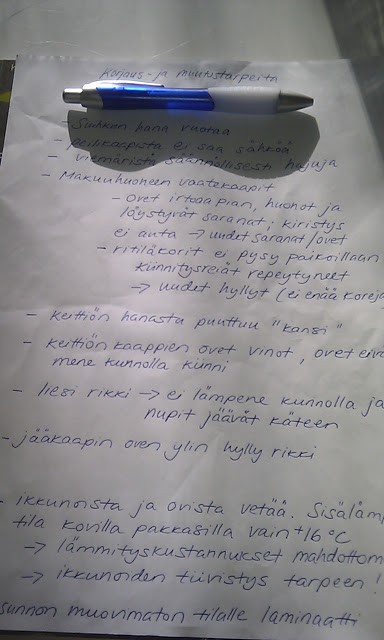 Korjaus- ja muutostarpeita
- Suihkun hana vuotaa
- peilikaapista ei saa sähköä
- viemäristä säännöllisesti hajuja
- Makuuhuoneen vaatekaapit
- ovet irtoaa pian, huonot ja
löystyvät saranat; kiristys
ei auta → uudet saranat/ovet
- ritiläkorit ei pysy paikoillaan
kiinnitysreiät repeytyneet
→ uudet hyllyt (ei enää koreja
- keittiön hanasta puuttuu "kansi"
- keittiön kaappien ovet vinot, ovet eivä
mene kunnolla kiinni
- liesi rikki → ei lämpene kunnolla ja
nupit jäävät käteen
- jääkaapin oven ylin hylly rikki
- ikkunoista ja ovista vetää. Sisäläm
tila kovilla pakkasilla vain +16 °C
→ lämmityskustannukset mahdottom
→ ikkunoiden tiivistys tarpeen!
sunnon muovimaton tilalle laminaatti